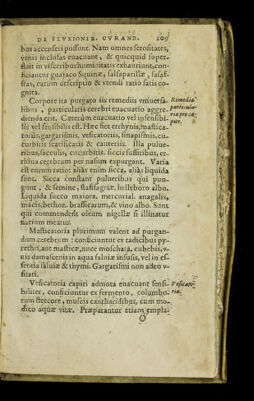 DE FLVXIONIB. CVRAND. 209
bus accenseri possunt. Nam omnes serositates,
venis inclusas euacuant, & quicquid super-
fluit in visceribus humiditatis exhauriunt, con-
ficiantur guajaco Squinæ, salsaparillæ, sasaf-
fras, earum descriptio & vtendi ratio satis co-
gnita.
Corpore ita purgato iis remediis vniuersa-
libus, particularis cerebri euacuatio aggre-
dienda erit. Cæterùm euacuatio vel insensibi-
lis vel sensibilis est. Hæc fiet errhynis, mastica-
toriis, gargarismis, vesicatoriis, sinapismis, cu-
curbitis scarificatis & cauteriis. Illa pulue-
ribus, sacculis, cucurbitis siccis, suffitibus, er-
rhina cerebrum per nasum expurgant. Varia
est eorum ratio: aliàs enim sicca, aliàs liquida
sunt. Sicca constant pulueribus qui pun-
gunt, & semine, staphisagriæ, helleboro albo.
Liquida succo maiora, mercurial. anagalis,
maceis, bethon. brassicarum, & vino albo. Sunt
qui commendent oleum nigellæ si illinatur
narium meatus.
Masticatoria plurimum valent ad purgan-
dum cerebrum: conficiuntur ex radicibus py-
rethri, aut masticæ, nuce moschata, cubebis, v-
uis damascenis in aqua saluiæ infusis, vel in es-
sentia saluiæ & thymi. Gargarismi non adeò v-
sitati.
Vesicatoria capiti admota euacuant sensi-
biliter, conficiuntur ex fermento, columbo-
rum stercore, muscis cantharidibus, cum mo-
dico aquæ vitæ. Præparantur etiam empla-
O
Remedia
particula-
ria pro ca-
pite.
Vesicato-
ria.